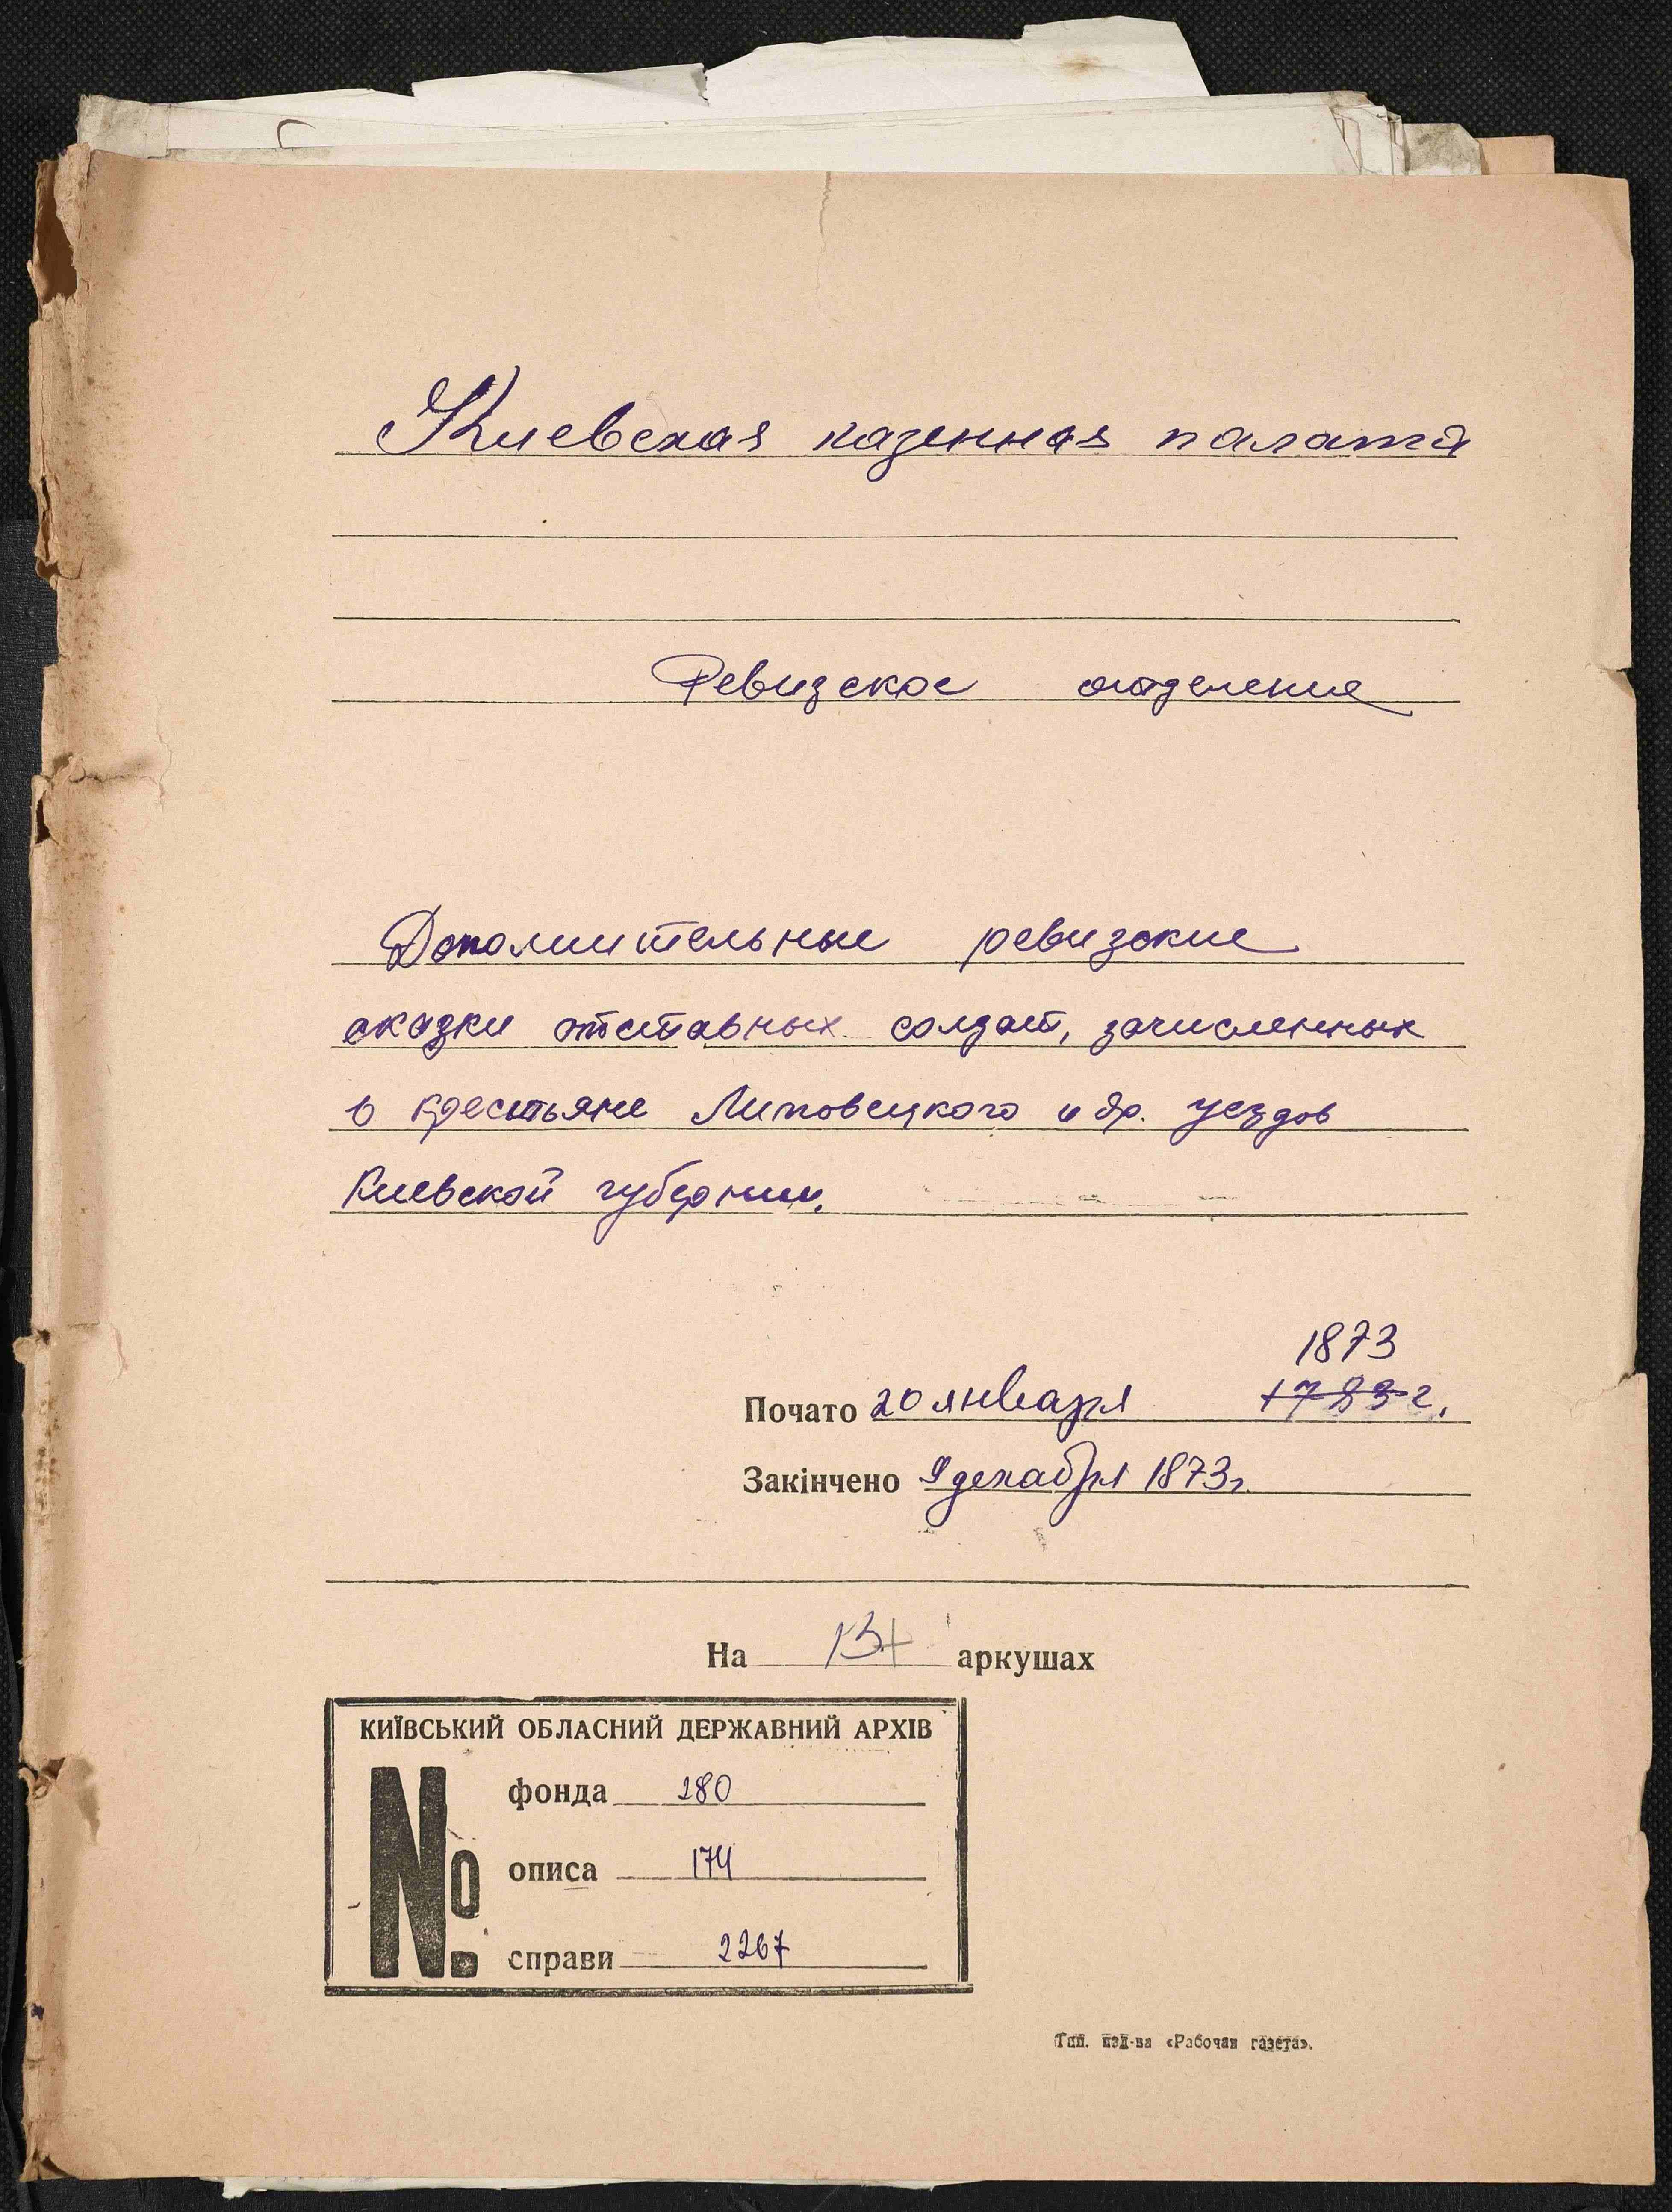 Киевская казенная палата
Ревизское отделение
Дополнительные ревизские
сказки отставных солдат, зачисленных
в крестьяне Липовецкого и др. уездов
Киевской губернии.
1873
Почато 20 января 1783 г.
Закінчено 9 декабря 1873 г.
На аркушах
КИЇВСЬКИЙ ОБЛАСНИЙ ДЕРЖАВНИЙ АРХІВ
№
фонда 280
описа 174
справи 2267
Тип. изд-ва «Рабочая газета».